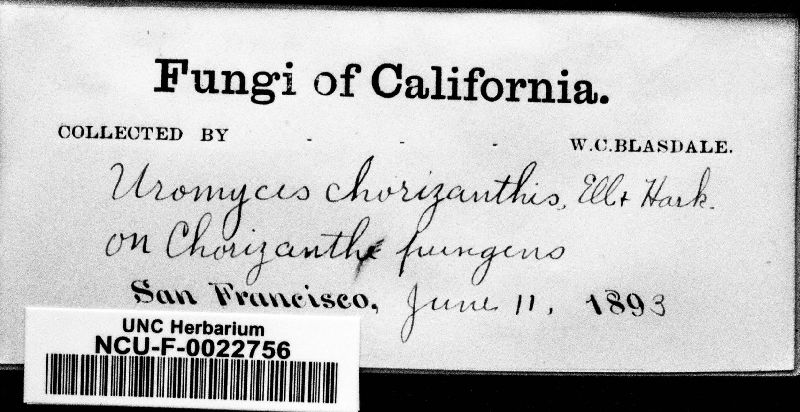 Fungi of California.
COLLECTED BY - - - W.C.BLASDALE.
Uromyces chorizanthis, Ell+ Hark.
on Chorizanthe pungens
San Francisco, June 11, 1893
UNC Herbarium
NCU-F-0022756